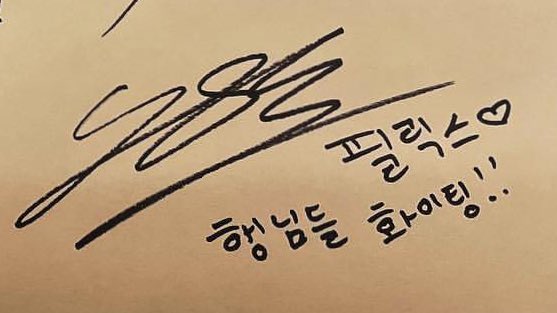 필릭스♡
행님들 화이팅!!